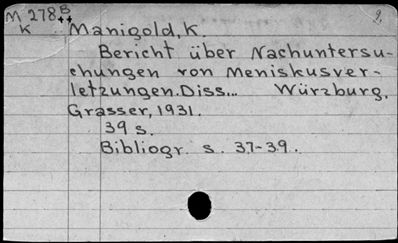 M 278B 9.
K Manigold, K.
Bericht über Nachuntersu-
chungen von Meniskusver-
letzungen. Diss... Würzburg,
Grasser, 1931.
39 s.
Bibliogr. s. 37-39.